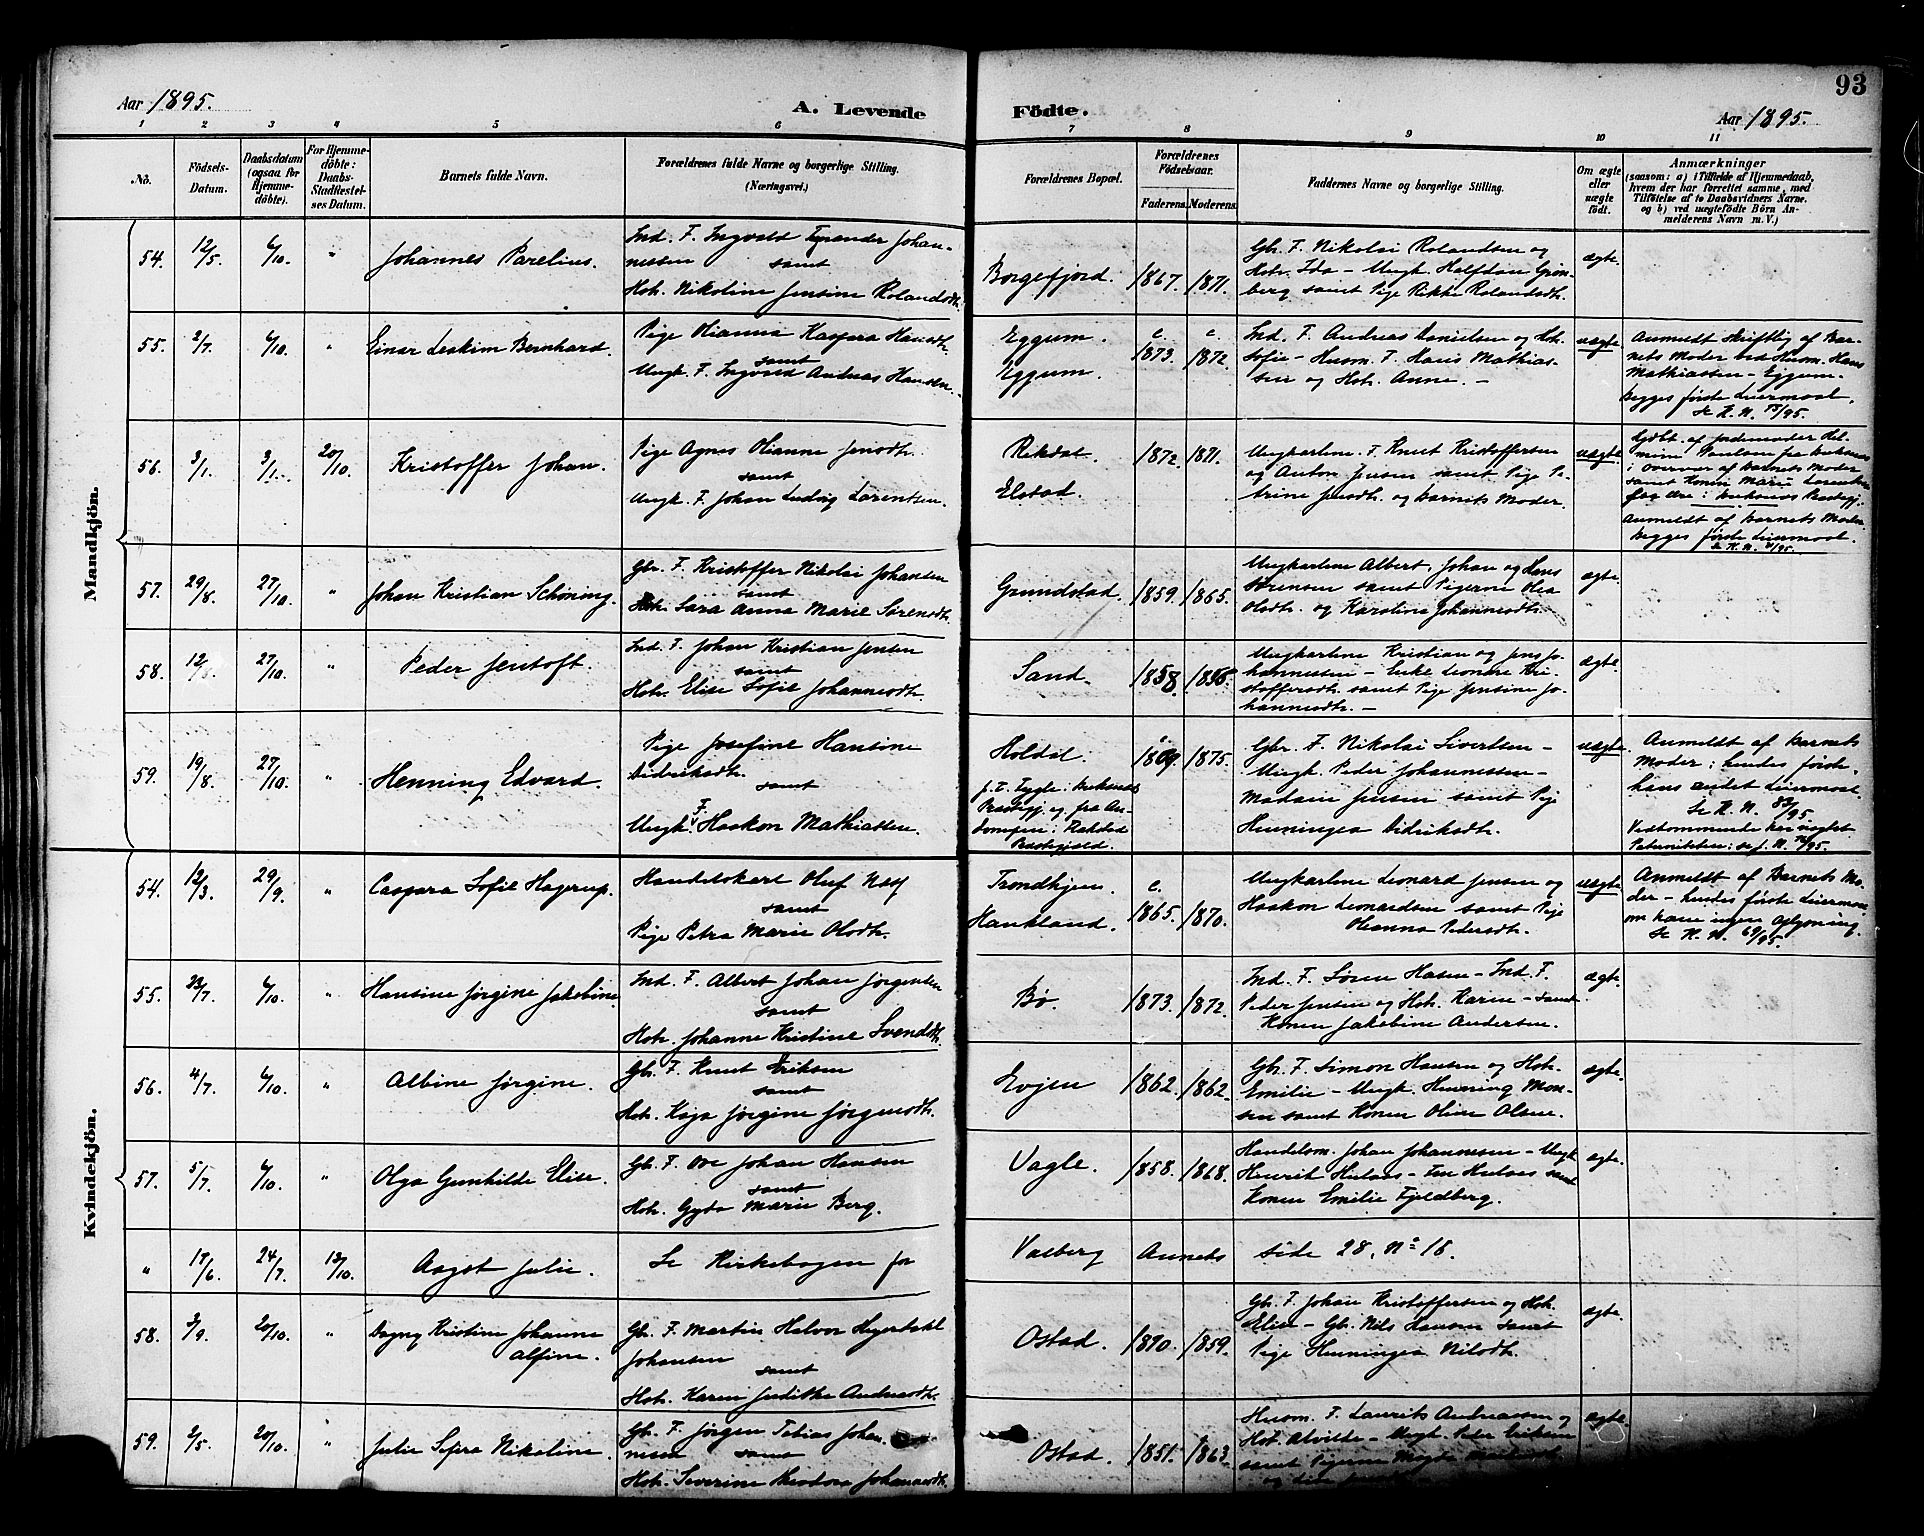 93
Aar 1895.
A. Levende
Födte.
Aar 1895.
1 2 3 4 5 6 7 8 9 10 11
No.
Födsels-
Datum.
Daabsdatum
(ogsaa for
Hjemme-
döbte).
For Hjemme-
döbte:
Daabs-
Stadfæstel-
ses Datum.
Barnets fulde Navn.
Forældrenes fulde Navne og borgerlige Stilling.
(Næringsvei.)
Forældrenes Bopæl.
Forældrenes
Födselsaar.
Faderens. Moderens.
Faddernes Navne og borgerlige Stilling.
Om ægte
eller
uægte
født.
Anmærkninger
(saasom: a) i Tilfælde af Hjemmedaab,
hvem der har forrettet samme, med
Tilföielse af to Daabsvidners Navne.
og b) ved uægtefödte Börn An-
melderens Navn m. V.)
Mandkjön.
54. 12/5 6/10. "
Johannes Parelius.
Ind. F. Ingvald Johan-
nessen samt
Hstr. Nikoline Jensine Rolandsdtr.
Borgefjord. 1867. 1871.
Gbr. F. Nikolai Rolandsen og
Hstr. Ida – Ungk. Halfdan Grøn-
berg samt Pige Rikke Rolandsdtr.
ægte.
55. 2/7. 6/10. "
Einar Leakim Bernhard.
Pige Olianna Kaspara Hansdtr.
samt
Ungk. F. Ingvald Andreas Hansen.
Eggum.
Eggum.
c. 1873. c. 1872.
Ind. F. Andreas Danielsen og Hstr.
Sofie – Husm. F. Hans Mathias-
sen og Hstr. Anne. –
uægte
Anmeldt skriftlig af Bar-
nets Moder ved Husm. Hans
Mathiassen – Eggum.
Begges første Leiermaal.
Se K. N. 75/95.
56. 3/1. 3/1. 20/10.
Kristoffer Johan.
Pige Agnes Olianne Jensdtr.
samt
Ungk. F. Johan Ludvig Lorentsen.
Rekdal.
Elstad.
1872. 1871.
Ungkarlene F. Knut Kristoffersen
og Anton Jensen samt Pige Pe-
trine Jensdtr. og Barnets Moder.
uægte.
Hjdbt. af Jordemoder Hel-
mine Paulsen fra Buksnes
i overvær af Barnets Moder
samt Konen Marie Lorentsen
Buksnes Prestegj.
Anmeldt af Barnets Moder.
Begges første Leiermaal.
57. 29/8. 27/10. "
Johan Kristian Schöning.
Gbr. F. Kristoffer Nikolai Johansen
samt
Hstr. Sara Anna Marie Sørensdtr.
Grundstad. 1859. 1865.
Ungkarlene Albert, Johan og Lars
Sørensen samt Pigerne Olea
Olsdtr. og Karoline Johannesdtr.
ægte.
58. 27/10. "
Peder Jentoft.
Ind. F. Johan Kristian Jensen
samt
Hstr. Elise Sofie Johannesdtr.
Sand. 1858
Ungkarlene Kristian og Jens Jo-
hannessen – Enke Leonore Kri-
stoffersdtr. samt Pige Jensine Jo-
hannesdtr. –
ægte.
59. 19/8. 27/10. "
Henning Edvard.
Pige Josefine Hansine
Didriksdtr.
samt
Ungk. F. Haakon Mathiassen.
Holdal.
1875.
Gbr. F. Nikolai Sivertsen –
Ungk. Peder Johannessen –
Madam Jensen samt Pige
Henningea Didriksdtr.
uægte.
Anmeldt af Barnets
Moder: hendes første,
hans andet Leiermaal.
Se K. N. 82/95.
Vedkommende har nægtet
Kvindekjön.
54. 12/3. 29/9. "
Caspara Sofie Hagerup.
Handelskarl Oluf Næss
samt
Pige Petra Marie Olsdtr.
Trondhjem.
Haukland.
c. 1865. 1870.
Ungkarlene Leonard Jensen og
Haakon Leonardsen samt Pige
Oleanna Pedersdtr.
uægte
Anmeldt af Barnets Mo-
der – hendes første Leiermaal,
om hans ingen oplysning.
Se K. N. 69/95.
55. 23/7. 6/10. "
Hansine Jørgine Jakobine.
Ind. F. Albert Johan Jørgensen
samt
Hstr. Johanne Kristine Svendsdtr.
Bø. 1873. 1872.
Ind. F. Søren Hansen – Ind. F.
Peder Jensen og Hstr. Karen – samt
Konen Jakobine Andersen.
ægte.
56. 4/7. 6/10. "
Albine Jørgine.
Gb. F. Knut Eriksen
samt
Hstr. Kaja Jørgine Jørgensdtr.
Evjen 1862. 1862.
Gb. F. Simon Hansen og Hstr.
Emilie – Ungk. Henning Mon-
sen samt Konen Oline Olsen.
ægte.
57. 5/7. 6/10. "
Olga Gunhilde Elise.
Gb. F. Ove Johan Hansen
samt
Hstr. Gyda Marie Berg.
Vagle. 1858. 1868.
Handelsm. Johan Johannessen – Ungk.
Henrik – samt
Konen Emilie Fjeldberg.
ægte.
" 17/6. 24/7. 13/10.
Aagot Julie.
Se Kirkebogen for
Valberg Annets side 28, No 18.
58. 3/9. 20/10. "
Dagny Kristine Johanne
Alfine.
Gb. F. Martin Halvor Hegerdahl
Johansen
samt
Hstr. Karen Judithe Andreasdtr.
Ostad. 1870. 1859.
Gb. F. Johan Kristoffersen og Hstr.
Elise – Gb. Nils Hansen samt
Pige Henningea Nilsdtr.
ægte.
59. 2/5. 20/10. "
Julie Nikoline.
Gb. F. Jørgen Tobias Johan-
nesen samt
Hstr. Severine Theodora Johannesdtr.
Ostad. 1851. 1863.
Husm. F. Laurits Andreassen og
Hstr. Alvilde – Ungk. Peder Eriksen
samt Pigerne
ægte.